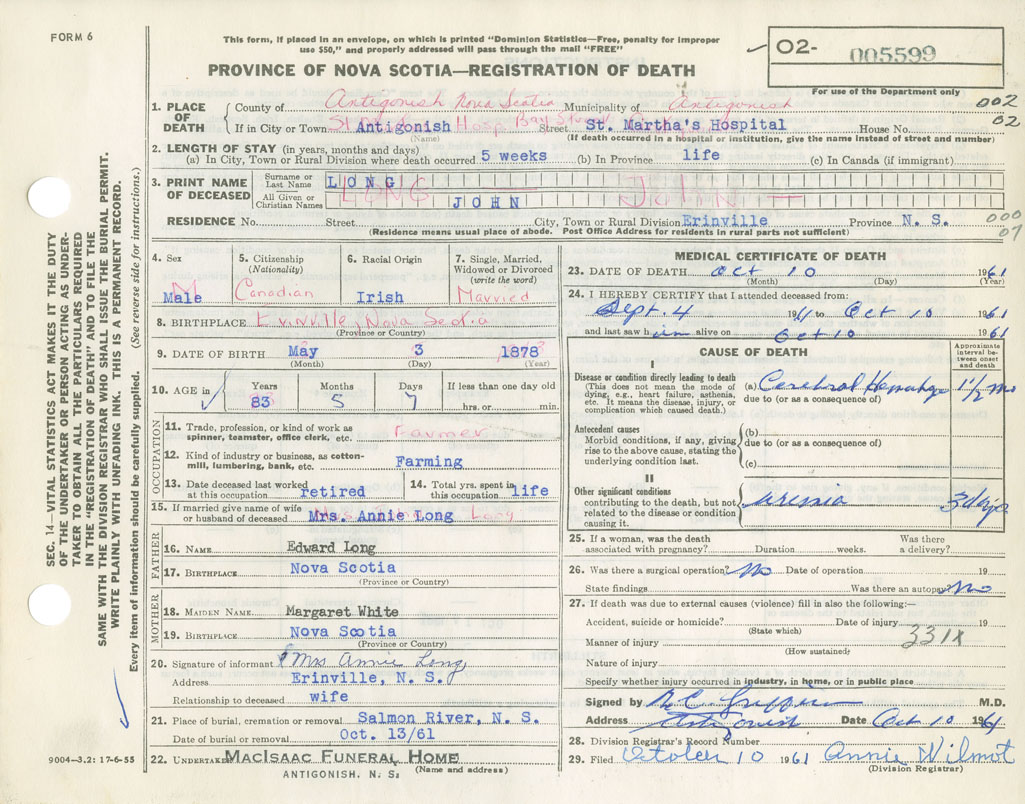 FORM 6
This form, if placed in an envelope, on which is printed "Dominion Statistics—Free, penalty for improper
use $50," and properly addressed will pass through the mail "FREE"
PROVINCE OF NOVA SCOTIA—REGISTRATION OF DEATH
O2- 005599
For use of the Department only
002
02
1. PLACE OF DEATH
County of Antigonish Nova Scotia Municipality of Antigonish
If in City or Town Antigonish Hosp. Bay Street St. Martha's Hospital House No.
(Name) (If death occurred in a hospital or institution, give the name instead of street and number)
2. LENGTH OF STAY (in years, months and days)
(a) In City, Town or Rural Division where death occurred 5 weeks (b) In Province life (c) In Canada (if immigrant)
3. PRINT NAME OF DECEASED
Surname or Last Name LONG LONG
All Given or Christian Names JOHN JOHN
RESIDENCE No. Street City, Town or Rural Division Erinville Province N. S.
(Residence means usual place of abode. Post Office Address for residents in rural parts not sufficient)
000
07
4. Sex M Male
5. Citizenship (Nationality) Canadian
6. Racial Origin Irish
7. Single, Married, Widowed or Divorced (write the word) Married
8. BIRTHPLACE Erinville, Nova Scotia
(Province or Country)
9. DATE OF BIRTH May 3 1878
(Month) (Day) (Year)
10. AGE in Years 83 Months 5 Days 7 If less than one day old hrs. or min.
OCCUPATION
11. Trade, profession, or kind of work as spinner, teamster, office clerk, etc. Farmer
12. Kind of industry or business, as cotton-mill, lumbering, bank, etc. Farming
13. Date deceased last worked at this occupation retired
14. Total yrs. spent in this occupation life
15. If married give name of wife or husband of deceased Mrs. Annie Long
FATHER
16. NAME Edward Long
17. BIRTHPLACE Nova Scotia
(Province or Country)
MOTHER
18. MAIDEN NAME Margaret White
19. BIRTHPLACE Nova Scotia
(Province or Country)
20. Signature of informant Mrs Annie Long
Address Erinville, N. S.
Relationship to deceased wife
21. Place of burial, cremation or removal Salmon River, N. S.
Date of burial or removal Oct. 13/61
22. UNDERTAKER MACISAAC FUNERAL HOME
ANTIGONISH. N. S. (Name and address)
MEDICAL CERTIFICATE OF DEATH
23. DATE OF DEATH Oct 10 1961
(Month) (Day) (Year)
24. I HEREBY CERTIFY that I attended deceased from:
Sept. 4 19 to Oct 10 1961
and last saw him alive on Oct 10 1961
CAUSE OF DEATH
Approximate interval between onset and death
I
Disease or condition directly leading to death
(This does not mean the mode of dying, e.g., heart failure, asthenia, etc. It means the disease, injury, or complication which caused death.)
(a) Cerebral 1 1/2 mo
due to (or as a consequence of)
Antecedent causes
Morbid conditions, if any, giving rise to the above cause, stating the underlying condition last.
(b)
due to (or as a consequence of)
(c)
II
Other significant conditions contributing to the death, but not related to the disease or condition causing it.
uremia 3 days
25. If a woman, was the death associated with pregnancy? Duration weeks. Was there a delivery?
26. Was there a surgical operation? No Date of operation 19
State findings Was there an autopsy No
27. If death was due to external causes (violence) fill in also the following:—
Accident, suicide or homicide? Date of injury 19
(State which)
331X
Manner of injury
(How sustained)
Nature of injury
Specify whether injury occurred in industry, in home, or in public place
Signed by M.D.
Address Antigonish Date Oct 10 1961
28. Division Registrar's Record Number
29. Filed October 10 1961 Annie Wilmot
(Division Registrar)
SEC. 14—VITAL STATISTICS ACT MAKES IT THE DUTY
OF THE UNDERTAKER OR PERSON ACTING AS UNDER-
TAKER TO OBTAIN ALL THE PARTICULARS REQUIRED
IN THE "REGISTRATION OF DEATH" AND TO FILE THE
SAME WITH THE DIVISION REGISTRAR WHO SHALL ISSUE THE BURIAL PERMIT.
WRITE PLAINLY WITH UNFADING INK. THIS IS A PERMANENT RECORD.
Every item of information should be carefully supplied. (See reverse side for instructions.)
9004—3.2: 17-6-55